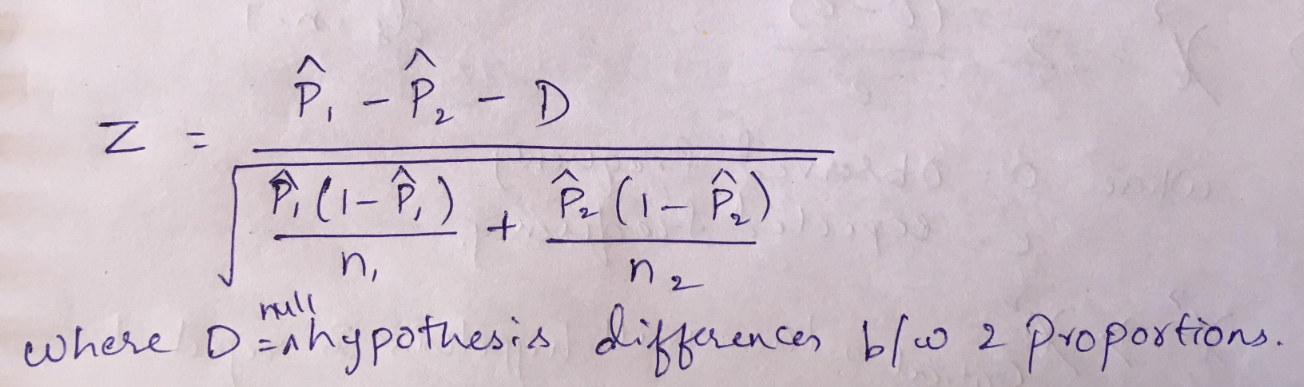 Z = (P̂₁ - P̂₂ - D) / √(P̂₁(1-P̂₁)/n₁ + P̂₂(1-P̂₂)/n₂)
where D = null hypothesis differences b/w 2 proportions.